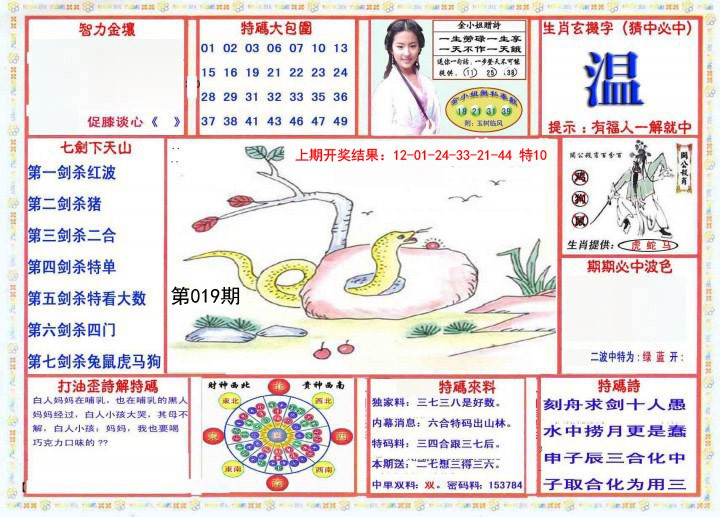 智力金壤
促膝谈心《 》
特碼大包圍
01 02 03 06 07 10 13
15 16 19 21 22 23 24
28 29 31 32 33 34 36
37 38 41 43 46 47 49
金小姐赠詩
一生勞碌一生享
一天不作一天餓
送你一句話，一步登天不可能
提供：(11) (25) (38)
金小姐無私奉獻
18 21 31 39
附：玉树临风
生肖玄機字（猜中必中）
温
提示：有福人一解就中
七劍下天山
第一剑杀红波
第二剑杀猪
第三剑杀二合
第四剑杀特单
第五剑杀特看大数
第六剑杀四门
第七剑杀兔鼠虎马狗
上期开奖结果：12-01-24-33-21-44 特10
第019期
關公殺肖百分百
關公殺肖
鸡
狗
鼠
生肖提供：虎 蛇 马
期期必中波色
二波中特为：绿 蓝 开：
打油歪詩解特碼
白人妈妈在哺乳，也在哺乳的黑人
妈妈经过，白人小孩大哭，其母不
解，白人小孩：妈妈，我也要喝
巧克力口味的 ??
财神西北
贵神西南
北
東北
西北
東
西
東南
西南
南
特碼來料
独家料：三七三八是好数。
内幕消息：六合特码出山林。
特码料：三四合跟三七后。
本期送：二七想三得三六。
中单双料：双。密码料：153784
特碼詩
刻舟求剑十人愚
水中捞月更是蠢
申子辰三合化中
子取合化为用三